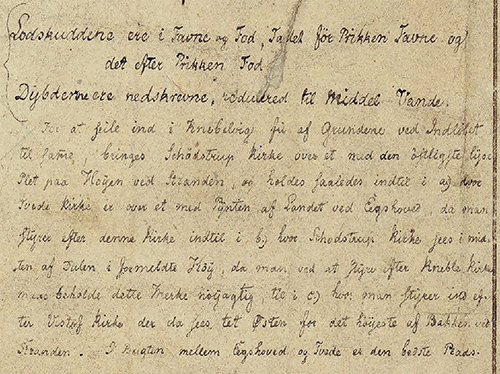 Lodskuddene ere i Favne og Fod, Tallet för Prikken Favne og
det efter Prikken Fod
Dybderne ere nedskrevne, reducered til Middel Vande.
For at seile ind i Knebelvig fri af Grundene ved Indlöbet
til samme, bringes Schödstrup Kirke over et med den östligste lyse
Plet paa Höyen ved Stranden, og holdes saaledes indtil i a) hvor
Tvede Kirke er over et med Pynten af Landet ved Eegshoved da man
styrer efter denne Kirke indtil i b) hvor Schodstrup Kirke sees i mid-
ten af Dalen i formeldte Höy, da man, ved at styre efter Kneble Kirke
maae beholde dette Merke nöyagtig, til i c) hvor man styrer ind ef-
ter Vistof Kirke der da sees tet Østen for det höyeste af Bakken ved
Stranden. I Bugten mellem Eegshoved og Tvede er den bedste Plads.